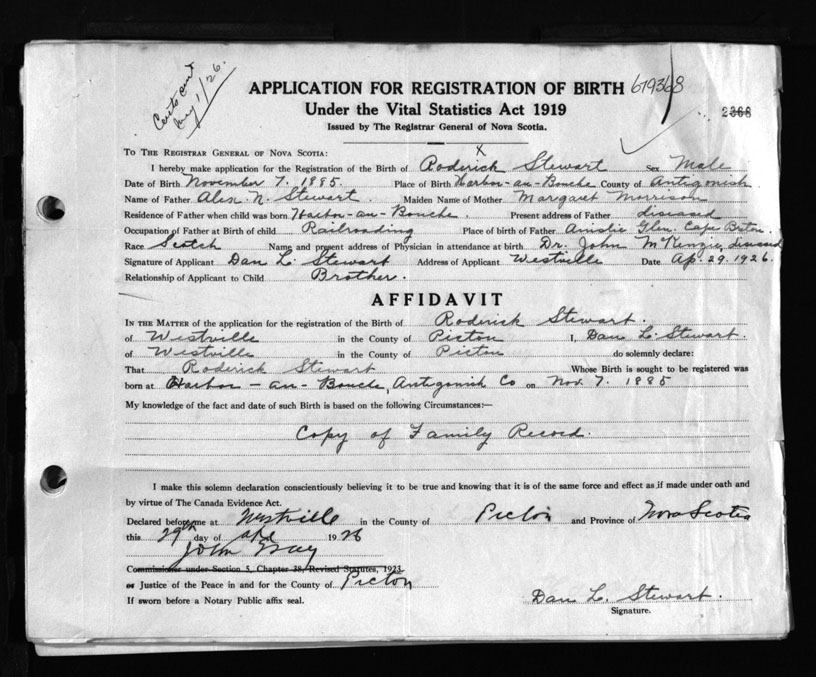 Certs sent
May 1/26.
APPLICATION FOR REGISTRATION OF BIRTH 679368
Under the Vital Statistics Act 1919
2368
Issued by The Registrar General of Nova Scotia.
X
TO THE REGISTRAR GENERAL OF NOVA SCOTIA:
I hereby make application for the Registration of the Birth of Roderick Stewart Sex Male
Date of Birth November 7. 1885. Place of Birth Harbor-an-Bouche County of Antigonish
Name of Father Alex. N. Stewart. Maiden Name of Mother Margaret Morrison
Residence of Father when child was born Harbor-an-Bouche. Present address of Father diseased
Occupation of Father at Birth of child Railroading Place of birth of Father Ainslie Glen. Cape Breton.
Race Scotch Name and present address of Physician in attendance at birth Dr. John McKenzie, diseased
Signature of Applicant Dan L. Stewart Address of Applicant Westville Date Ap. 29. 1926.
Relationship of Applicant to Child Brother.
AFFIDAVIT
IN THE MATTER of the application for the registration of the Birth of Roderick Stewart.
of Westville in the County of Pictou I, Dan L. Stewart.
of Westville in the County of Pictou do solemnly declare:
That Roderick Stewart Whose Birth is sought to be registered was
born at Harbor-an-Bouche, Antigonish Co on Nov. 7. 1885
My knowledge of the fact and date of such Birth is based on the following Circumstances:—
Copy of Family Record.
I make this solemn declaration conscientiously believing it to be true and knowing that it is of the same force and effect as if made under oath and
by virtue of The Canada Evidence Act.
Declared before me at Westville in the County of Pictou and Province of Nova Scotia
this 29th day of Apl 1926
John Gray
Commissioner under Section 5, Chapter 38, Revised Statutes, 1923.
or Justice of the Peace in and for the County of Pictou
If sworn before a Notary Public affix seal.
Dan L. Stewart.
Signature.